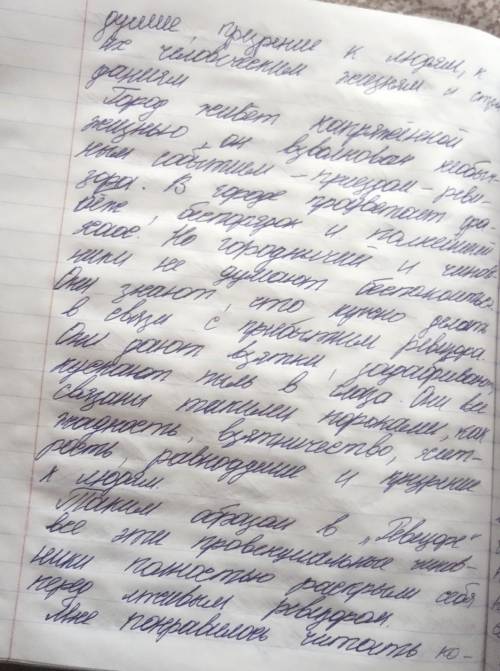 душие презрение к людям, к
их человеческим жизням и стра
даниям
Город живет напряжённой
жизнью – он взволнован необыч
ным событием – приездом – реви-
зора. В городе процветает гра-
бёж, беспорядок и полнейший
хаос. Но городничий и чинов
ники не думают беспокоиться.
Они знают, что нужно делать
в связи с прибытием ревизора.
Они дают взятки, задабривают,
пускают пыль в глаза. Они все
связаны такими пороками, как
жадность, взятничество, хит-
рость, равнодушие и презрение
к людям.
Таким образом в „Ревизоре"
все эти провенциальные чинов-
ники полностью раскрыли себя
перед лживым ревизором.
Мне понравилось читать ко-